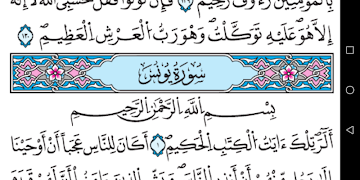 بِٱلْمُؤْمِنِينَ رَءُوفٌ رَّحِيمٌ ١٢٨ فَإِن تَوَلَّوْا۟ فَقُلْ حَسْبِىَ ٱللَّهُ لَآ إِلَٰهَ
إِلَّا هُوَ ۖ عَلَيْهِ تَوَكَّلْتُ ۖ وَهُوَ رَبُّ ٱلْعَرْشِ ٱلْعَظِيمِ ١٢٩
سُورَةُ يُونُسَ
بِسْمِ ٱللَّهِ ٱلرَّحْمَٰنِ ٱلرَّحِيمِ
الٓر ۚ تِلْكَ ءَايَٰتُ ٱلْكِتَٰبِ ٱلْحَكِيمِ ١ أَكَانَ لِلنَّاسِ عَجَبًا أَنْ أَوْحَيْنَآ